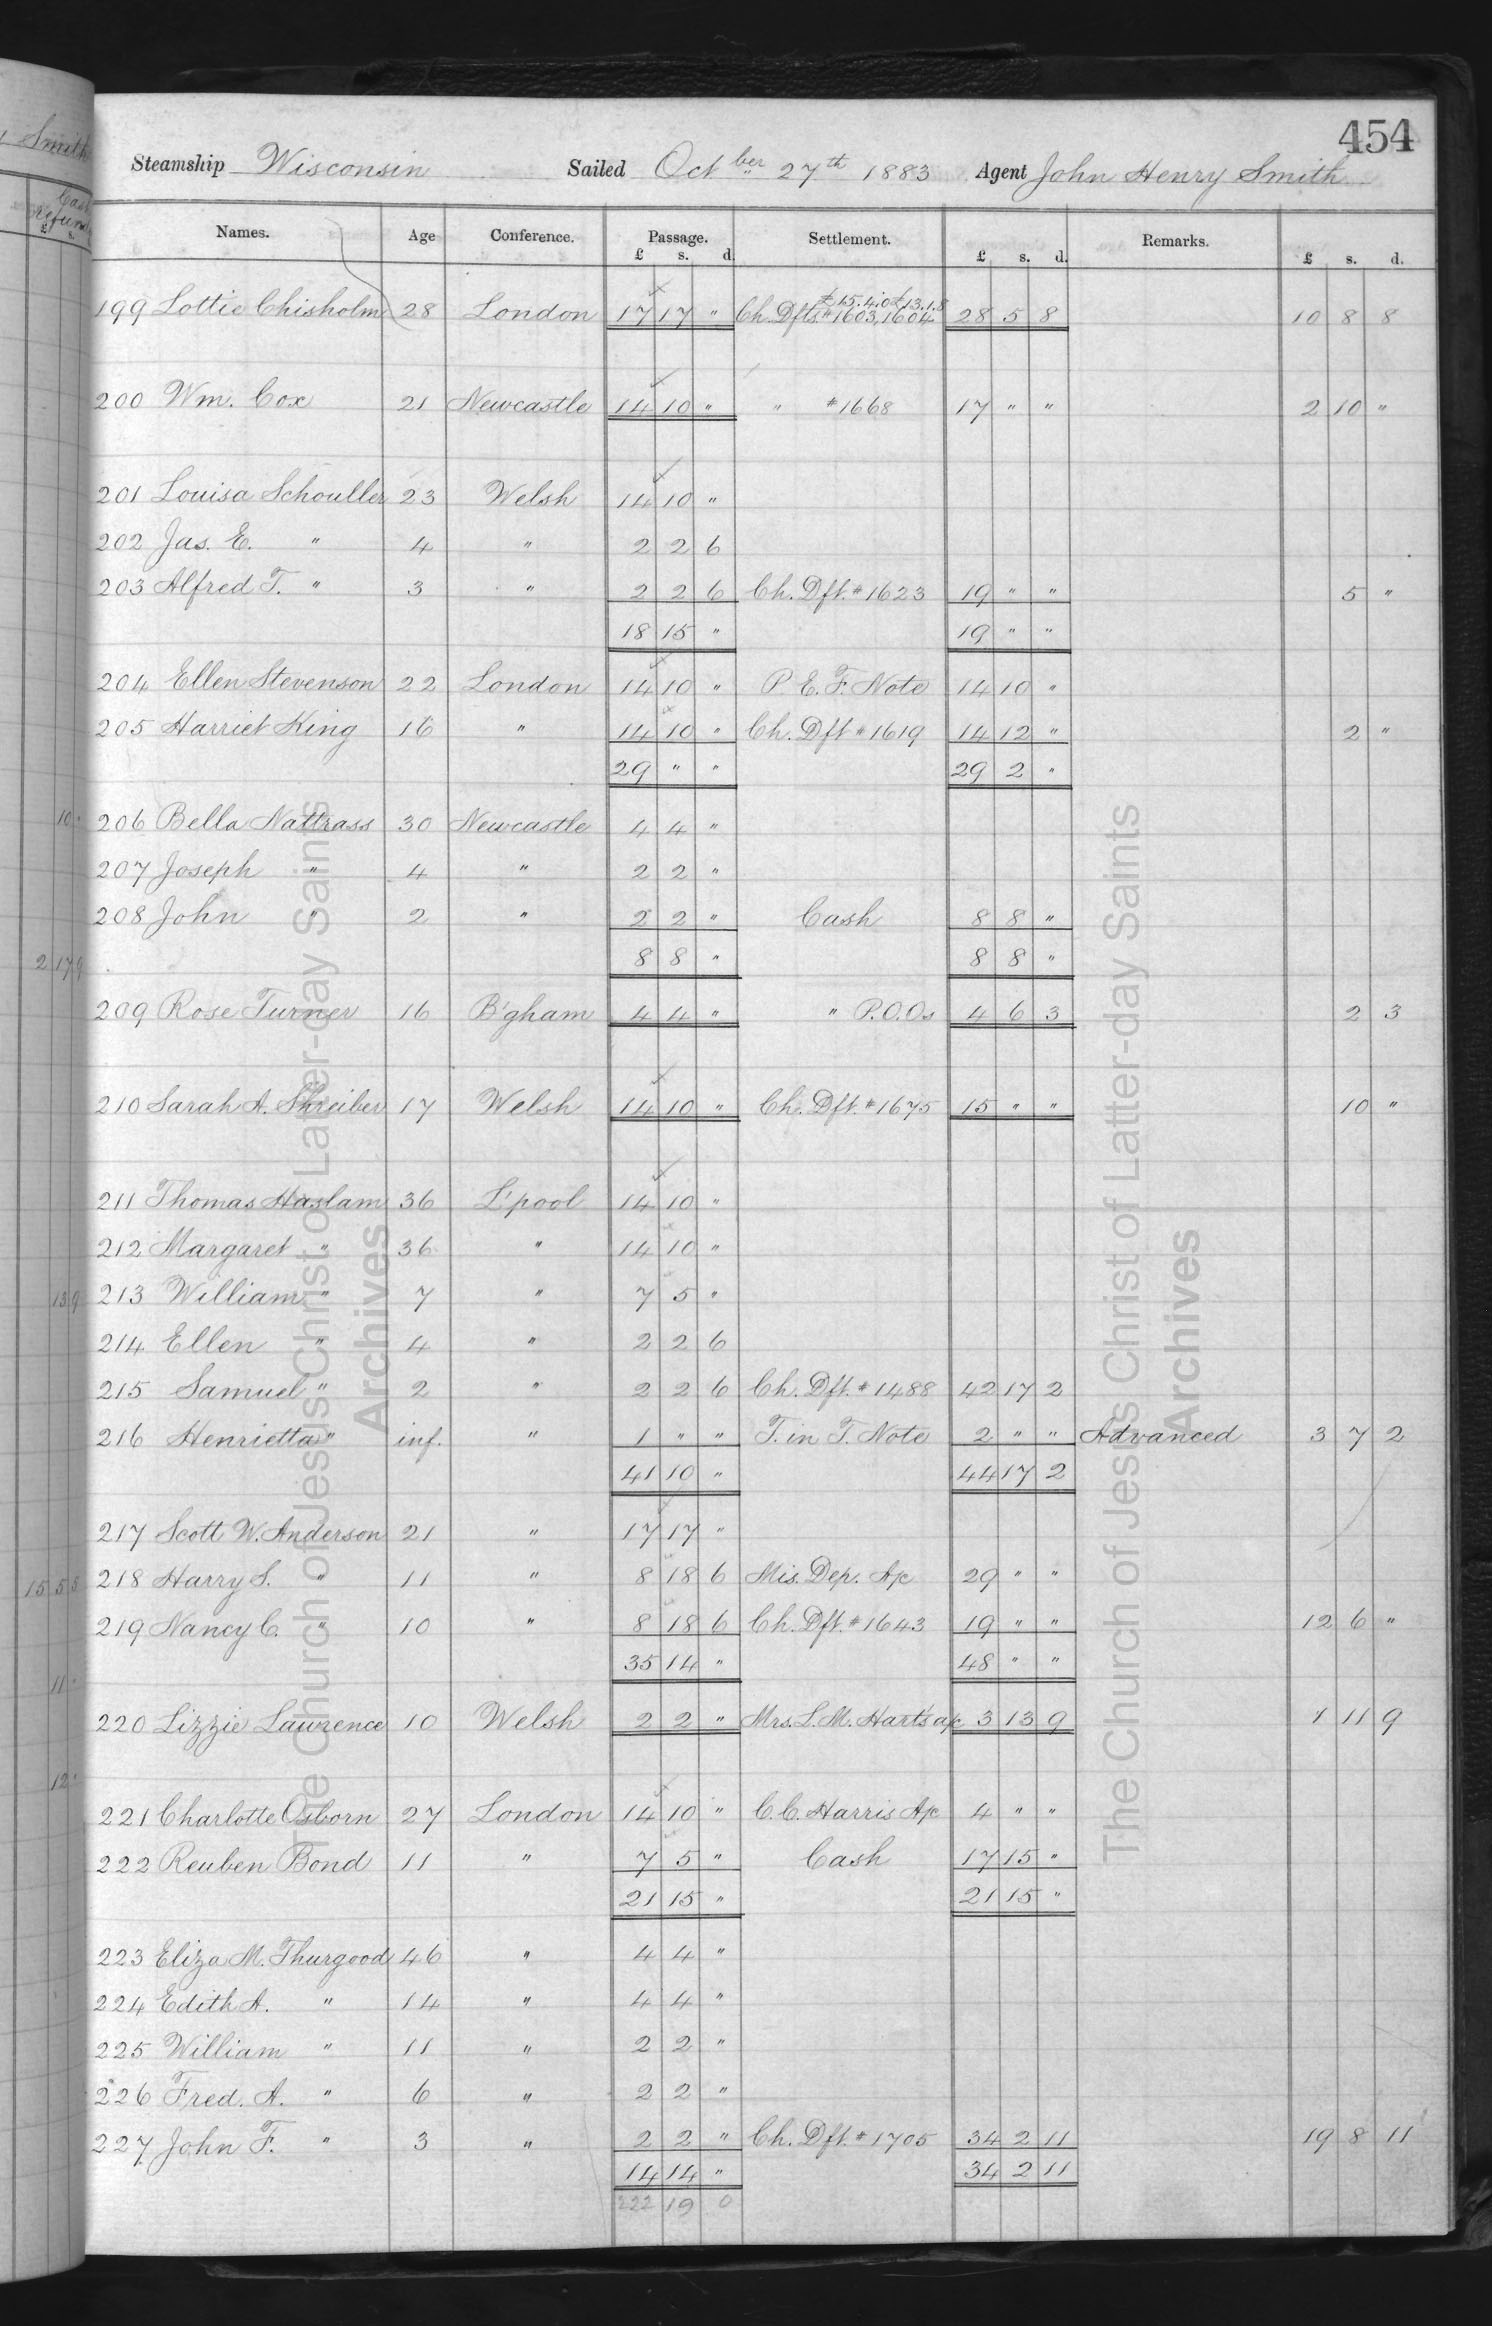 454
Steamship Wisconsin Sailed Octber 27th 1883 Agent John Henry Smith
Names. Age Conference. Passage. Settlement. Remarks.
£ s. d. £ s. d. £ s. d.
£15.4.0 £13.1.8
199 Lottie Chisholm 28 London 17 17 " Ch. Dfts. #1603, 1604 28 5 8 10 8 8
200 Wm. Cox 21 Newcastle 14 10 " " #1668 17 " " 2 10 "
201 Louisa Schouller 23 Welsh 14 10 "
202 Jas. E. " 4 " 2 2 6
203 Alfred T. " 3 " 2 2 6 Ch. Dft. #1623 19 " " 5 "
18 15 " 19 " "
204 Ellen Stevenson 22 London 14 10 " P. E. F. Note 14 10 "
205 Harriet King 16 " 14 10 " Ch. Dft #1619 14 12 " 2 "
29 " " 29 2 "
206 Bella Nattrass 30 Newcastle 4 4 "
207 Joseph " 4 " 2 2 "
208 John " 2 " 2 2 " Cash 8 8 "
8 8 " 8 8 "
209 Rose Turner 16 B'gham 4 4 " " P.O.Os 4 6 3 2 3
210 Sarah A. Shreiber 17 Welsh 14 10 " Ch. Dft. #1675 15 " " 10 "
211 Thomas Haslam 36 L'pool 14 10 "
212 Margaret " 36 " 14 10 "
213 William " 7 " 7 5 "
214 Ellen " 4 " 2 2 6
215 Samuel " 2 " 2 2 6 Ch. Dft. #1488 42 17 2
216 Henrietta " inf. " 1 " " T. in T. Note 2 " " Advanced 3 7 2
41 10 " 44 17 2
217 Scott W. Anderson 21 " 17 17 "
218 Harry S. " 11 " 8 18 6 Mis. Dep. A/c 29 " "
219 Nancy C. " 10 " 8 18 6 Ch. Dft. #1643 19 " " 12 6 "
35 14 " 48 " "
220 Lizzie Lawrence 10 Welsh 2 2 " Mrs. L. M. Hart's a/c 3 13 9 1 11 9
221 Charlotte Osborn 27 London 14 10 " C. C. Harris A/c 4 " "
222 Reuben Bond 11 " 7 5 " Cash 17 15 "
21 15 " 21 15 "
223 Eliza M. Thurgood 46 " 4 4 "
224 Edith A. " 14 " 4 4 "
225 William " 11 " 2 2 "
226 Fred. A. " 6 " 2 2 "
227 John F. " 3 " 2 2 " Ch. Dft. #1705 34 2 11 19 8 11
14 14 " 34 2 11
222 19 0
The Church of Jesus Christ of Latter-day Saints
Archives
The Church of Jesus Christ of Latter-day Saints
Archives